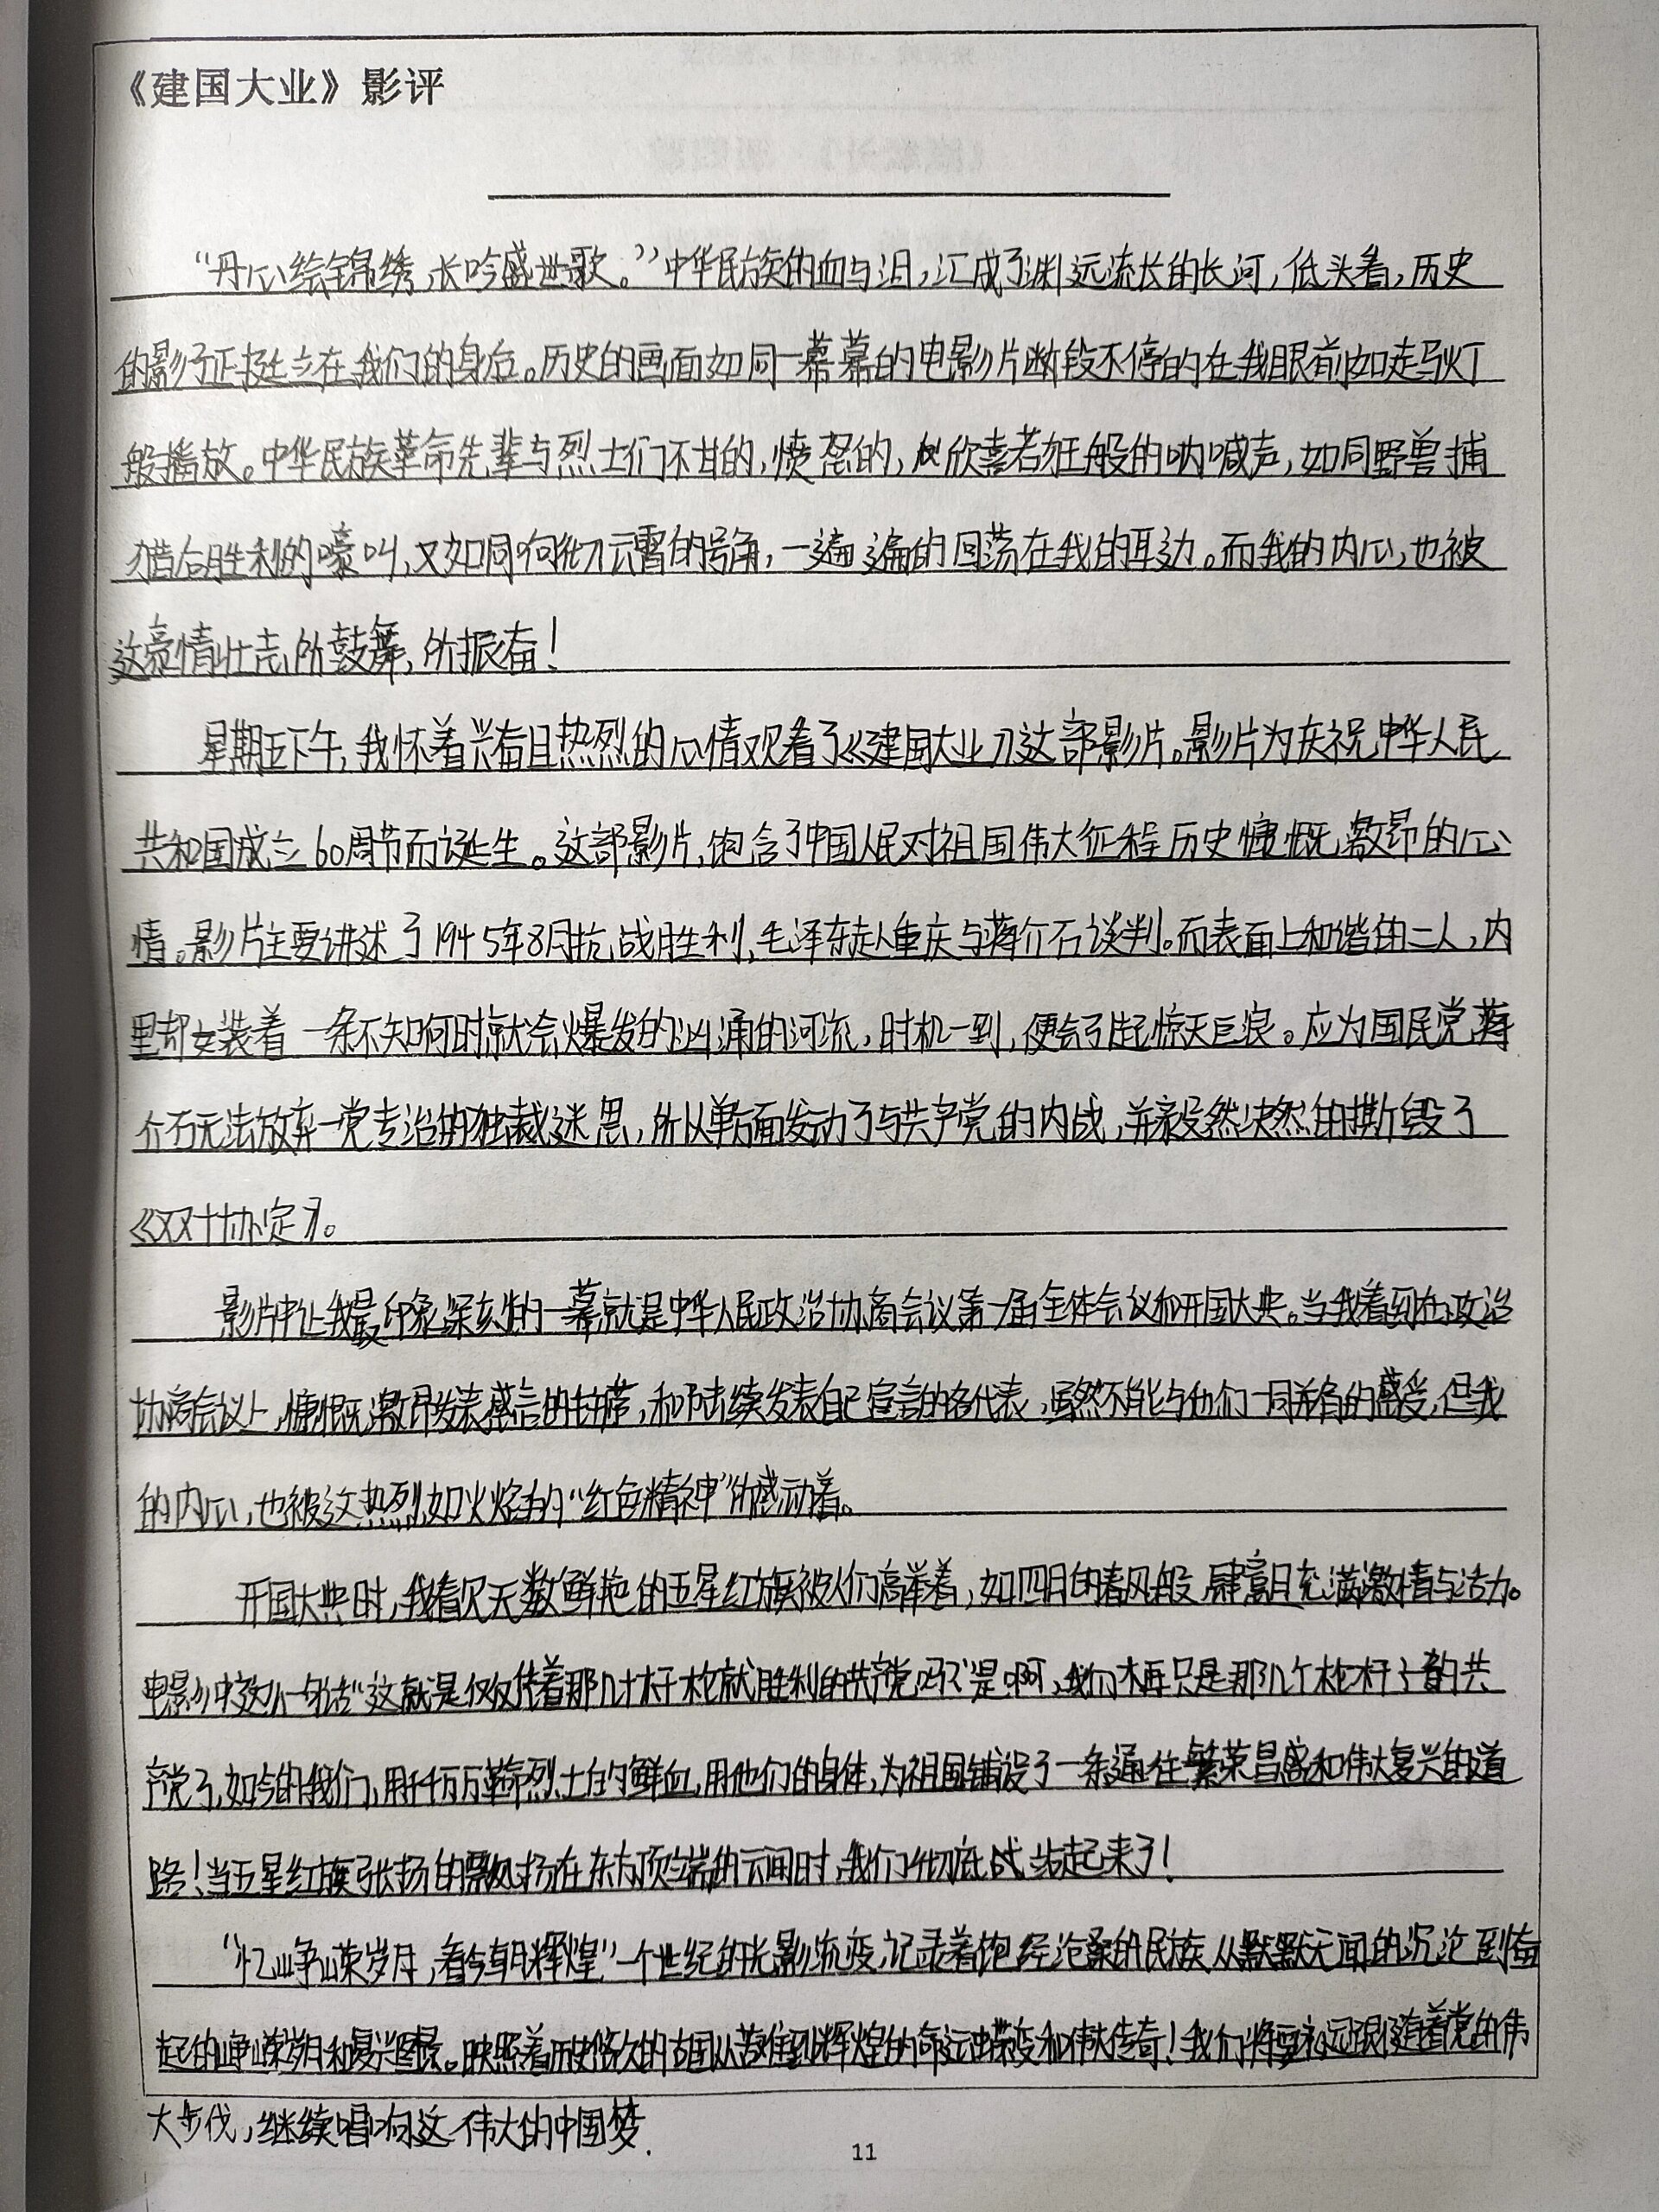 《建国大业》影评
“丹心绘锦绣,长吟盛世歌。”中华民族的血与泪,汇成了渊远流长的长河,低头看,历史
的影子正挺立在我们的身后。历史的画面如同一幕幕的电影片断段不停的在我眼前如走马灯
般播放。中华民族革命先辈与烈士们不甘的,愤怒的,欣喜若狂般的呐喊声,如同野兽捕
猎后胜利的嚎叫,又如同响彻云霄的号角,一遍遍的回荡在我的耳边。而我的内心,也被
这豪情壮志所鼓舞,所振奋!
星期五下午,我怀着兴奋且热烈的心情观看了《建国大业》这部影片。影片为庆祝中华人民
共和国成立60周节而诞生。这部影片,饱含了中国人民对祖国伟大征程历史慷慨激昂的心
情。影片主要讲述了1945年8月抗战胜利,毛泽东赴重庆与蒋介石谈判。而表面上和谐的二人,内
里却安装着一条不知何时就会爆发的汹涌的河流,时机一到,便会引起惊天巨浪。应为国民党蒋
介石无法放弃一党专治的独裁迷思,所以单方面发动了与共产党的内战,并毅然决然的撕毁了
《双十协定》。
影片中让我最印象深刻的一幕就是中华人民政治协商会议第一届全体会议和开国大典。当我看到在政治
协商会议上,慷慨激昂发表感言的主席,和陆续发表自己宣言的各代表,虽然不能与他们一同并肩的感受,但我
的内心,也被这热烈如火焰的“红色精神”所感动着。
开国大典时,我看见无数鲜艳的五星红旗被人们高举着,如四月的春风般,肆意且充满激情与活力。
电影中这么一句话“这就是仅仅凭着那几十杆枪就胜利的共产党吗?”是啊,我们不再只是那几个枪杆子的共
产党了,如今的我们,用千万万革命烈士的鲜血,用他们的身体,为祖国铺设了一条通往繁荣昌盛和伟大复兴的道
路!当五星红旗张扬的飘扬在东方顶端的云间时,我们彻底站起来了!
“忆峥嵘岁月,看今朝辉煌”一个世纪的光影流变,记录着饱经沧桑的民族从默默无闻的沉沦到奋
起的峥嵘岁月和复兴图景。映照着历史悠久的古国从苦难到辉煌的命运蝶变和伟大传奇!我们将要永远跟随着党的伟
大步伐,继续唱响这伟大的中国梦.
11